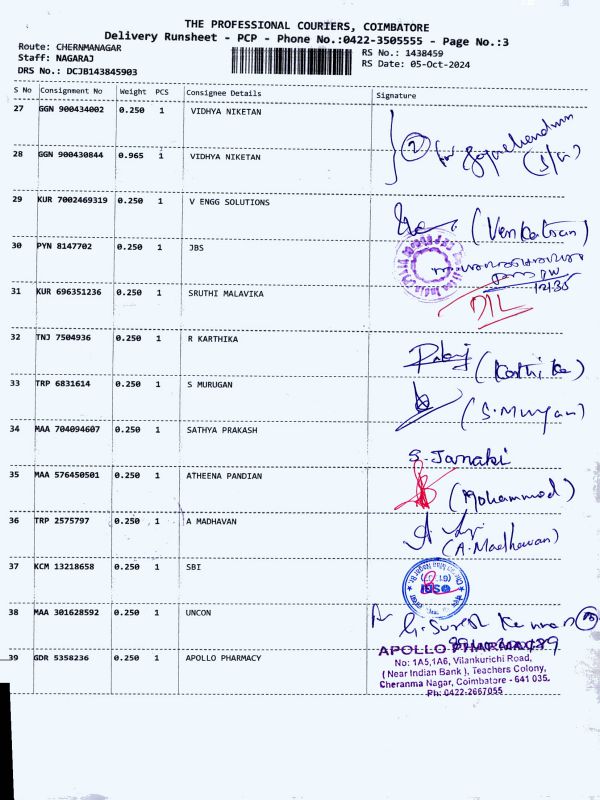 THE PROFESSIONAL COURIERS, COIMBATORE
Delivery Runsheet - PCP - Phone No.:0422-3505555 - Page No.:3
Route: CHERNMANAGAR
RS No.: 1438459
Staff: NAGARAJ
RS Date: 05-Oct-2024
DRS No.: DCJB143845903
S No Consignment No Weight PCS Consignee Details Signature
27 GGN 900434002 0.250 1 VIDHYA NIKETAN
28 GGN 900430844 0.965 1 VIDHYA NIKETAN
2 for
29 KUR 7002469319 0.250 1 V ENGG SOLUTIONS
(Venkatesan)
30 PYN 8147702 0.250 1 JBS
31 KUR 696351236 0.250 1 SRUTHI MALAVIKA
DIL
32 TNJ 7504936 0.250 1 R KARTHIKA
(Karthika)
33 TRP 6831614 0.250 1 S MURUGAN
(S.Murugan)
34 MAA 704094607 0.250 1 SATHYA PRAKASH
S. Janaki
35 MAA 576450501 0.250 1 ATHEENA PANDIAN
(Mohammod)
36 TRP 2575797 0.250 1 A MADHAVAN
(A.Madhavan)
37 KCM 13218658 0.250 1 SBI
38 MAA 301628592 0.250 1 UNCON
G. Suresh Kumar
39 GDR 5358236 0.250 1 APOLLO PHARMACY
APOLLO PHARMACY
No: 1A5,1A6, Vilankurichi Road,
( Near Indian Bank ), Teachers Colony,
Cheranma Nagar, Coimbatore - 641 035.
Ph: 0422-2667055